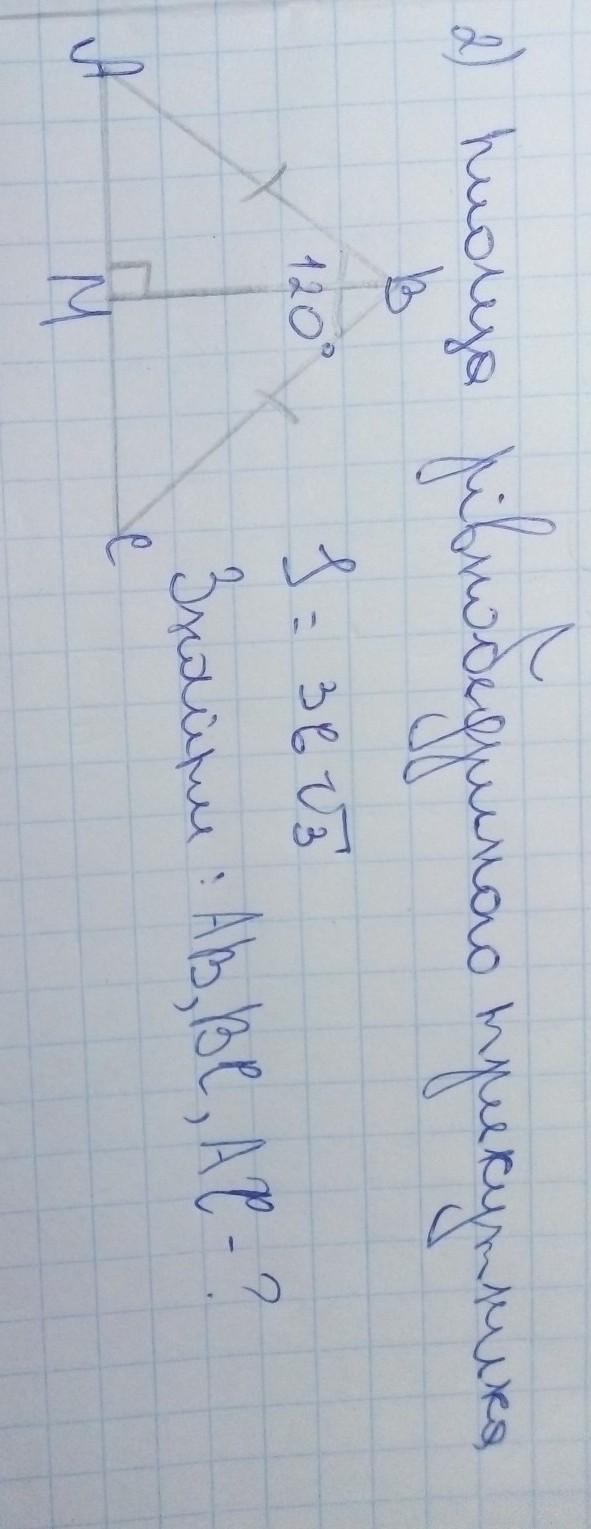 2) площа рівнобедриного трикутника
B
120°
A
M
C
S = 36√3
Знайти: AB, BC, AC - ?